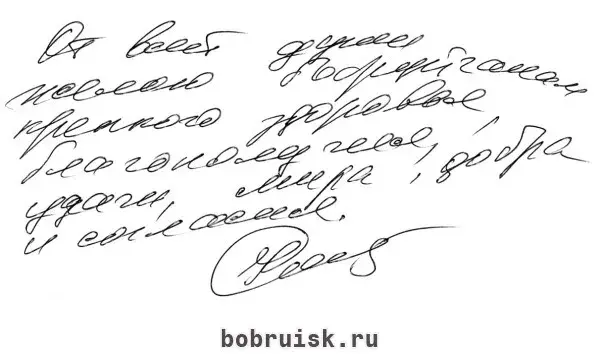 От всей души
желаю бобруйчанам
крепкого здоровья,
благополучия, добра
удачи, мира,
и согласия.
bobruisk.ru